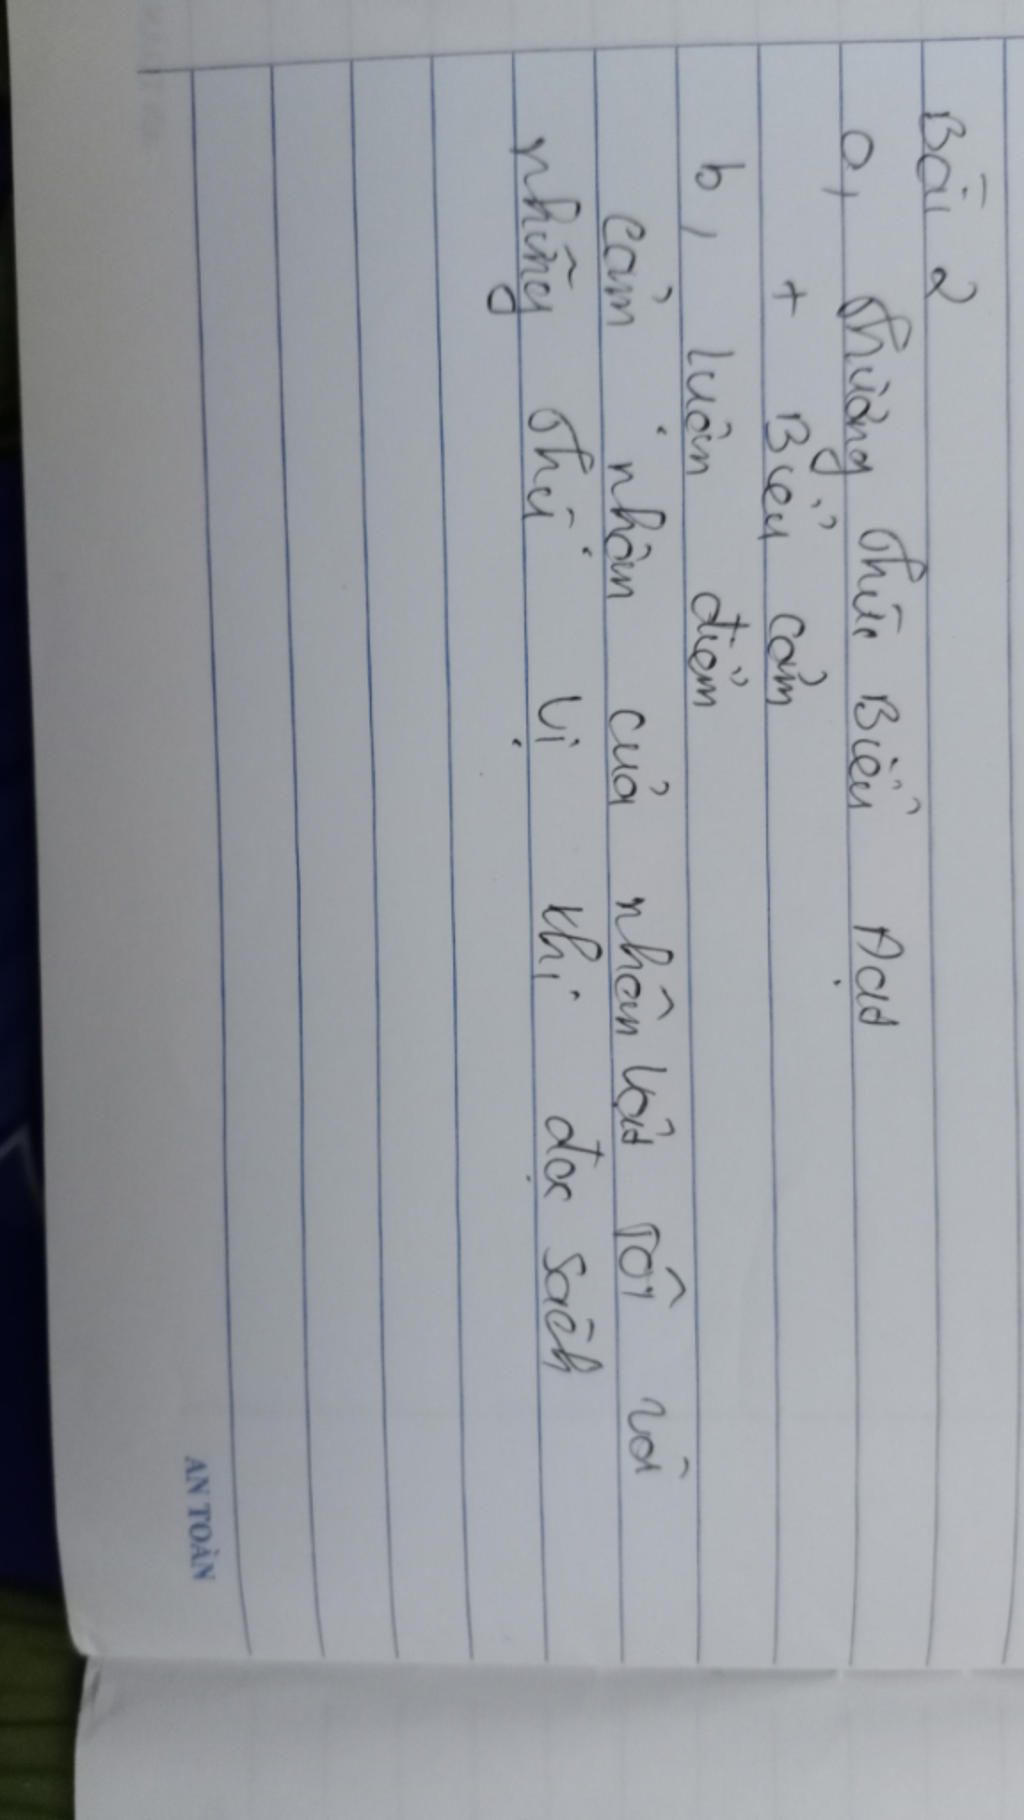 Bài 2
a, Phương thức Biểu Đạt
+ Biểu cảm
b, luận điểm
cảm nhận của nhân vật Tôi về
những thú vị khi đọc sách
AN TOÀN